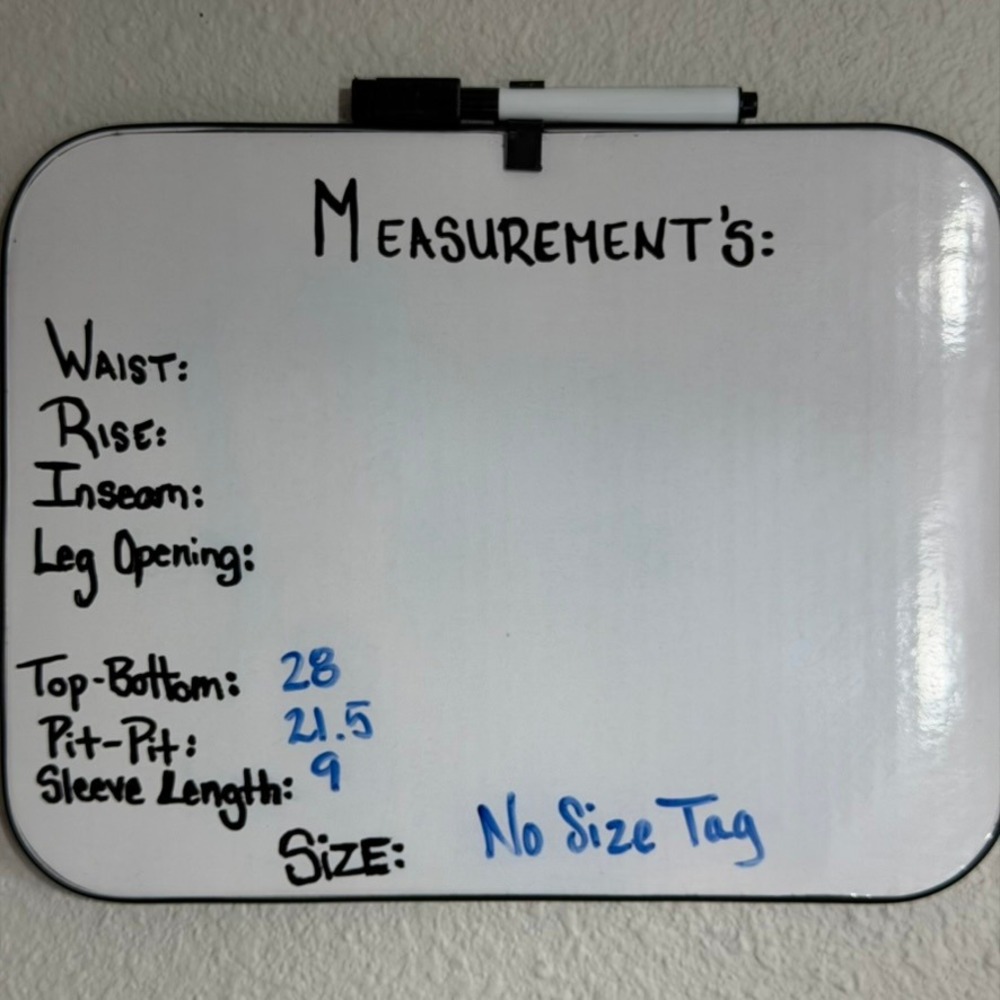 MEASUREMENT'S:
WAIST:
RISE:
Inseam:
Leg Opening:
Top-Bottom: 28
Pit-Pit: 21.5
Sleeve Length: 9
SIZE: No Size Tag